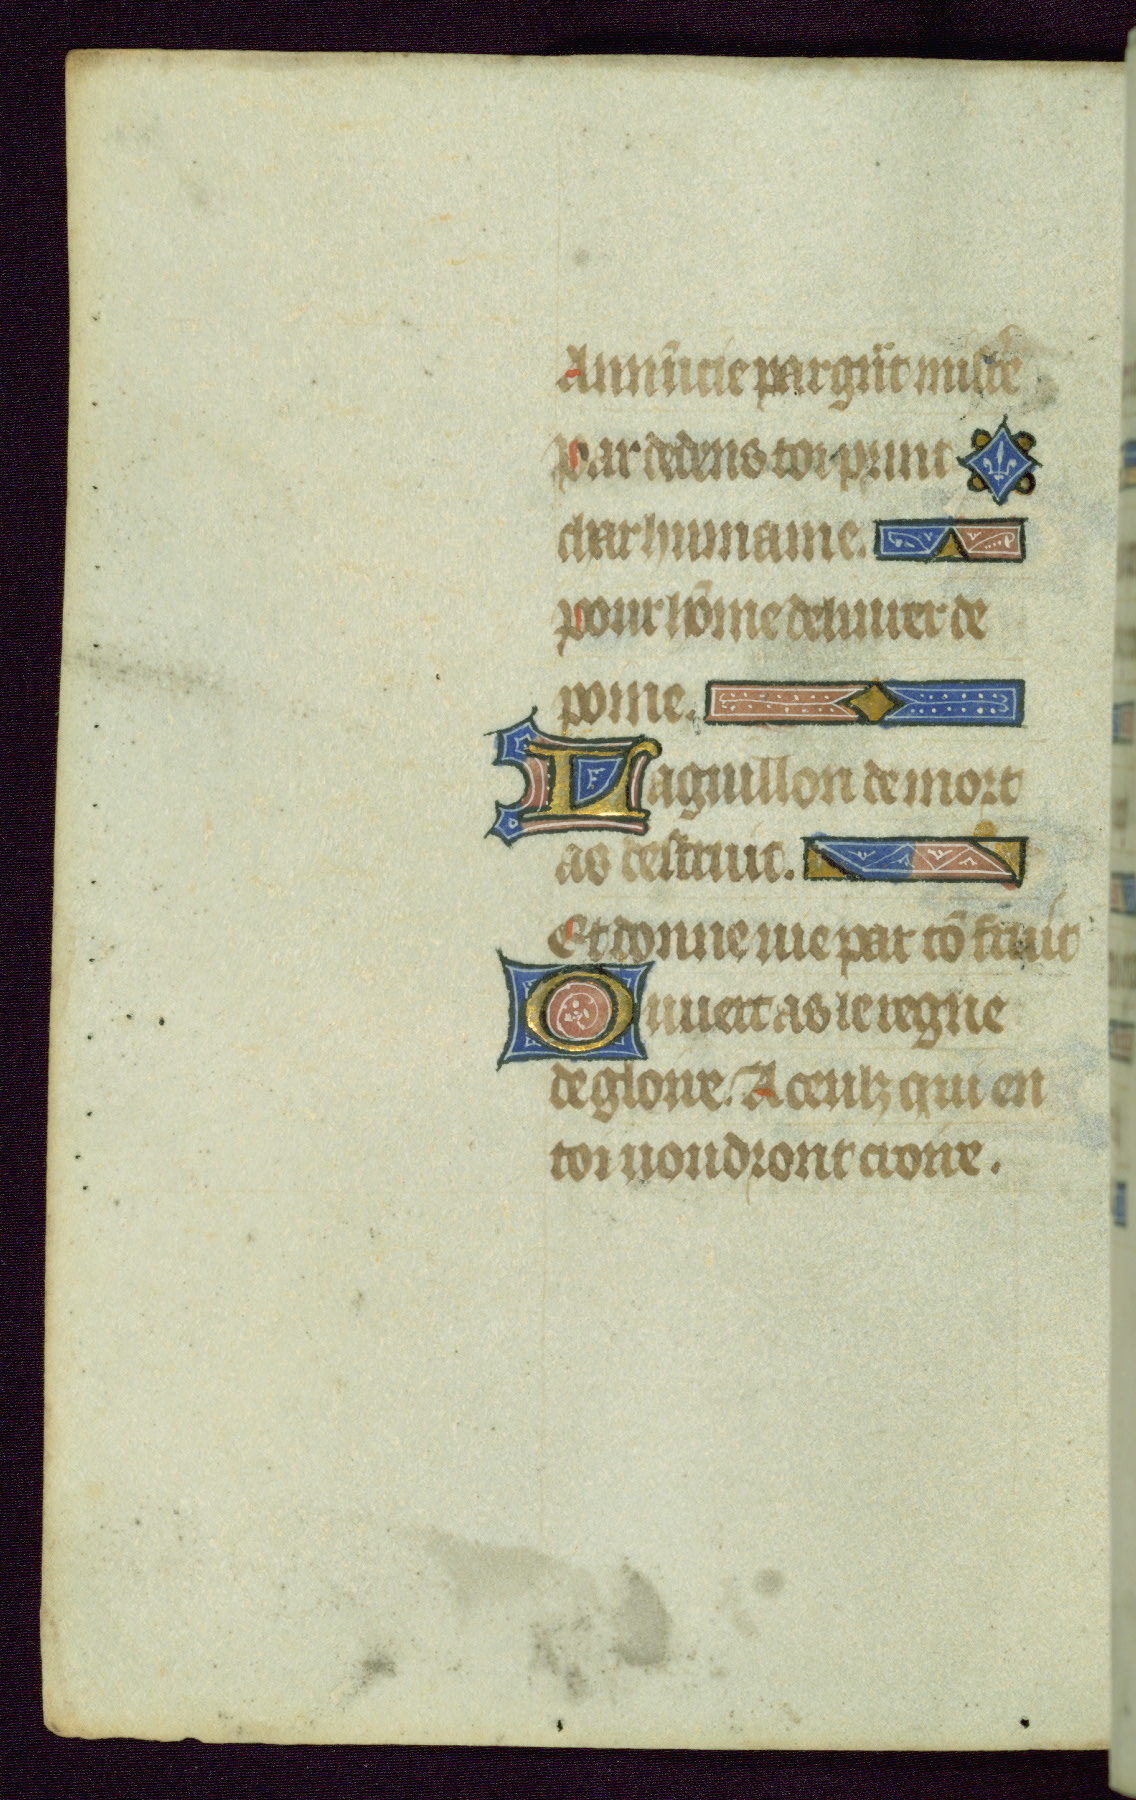 Annūcie par gr̄nt mist̄e
par dedens toi print
char humaine.
pour hōme deliurer de
poine.
Laguillon de mort
as destruit.
Et donne uie par tō fruit
Ouuert as le regne
de gloire. A ceulz qui en
toi uoudront croire.